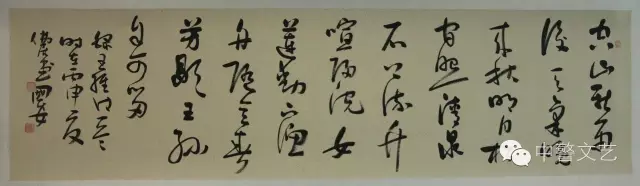 空山新雨
後天氣晚
来秋明月松
间照清泉
石上流竹
喧归浣女
蓮動下渔
舟随意春
芳歇王孙
自可留
録王維诗一首
时在丙申夏
中警文艺